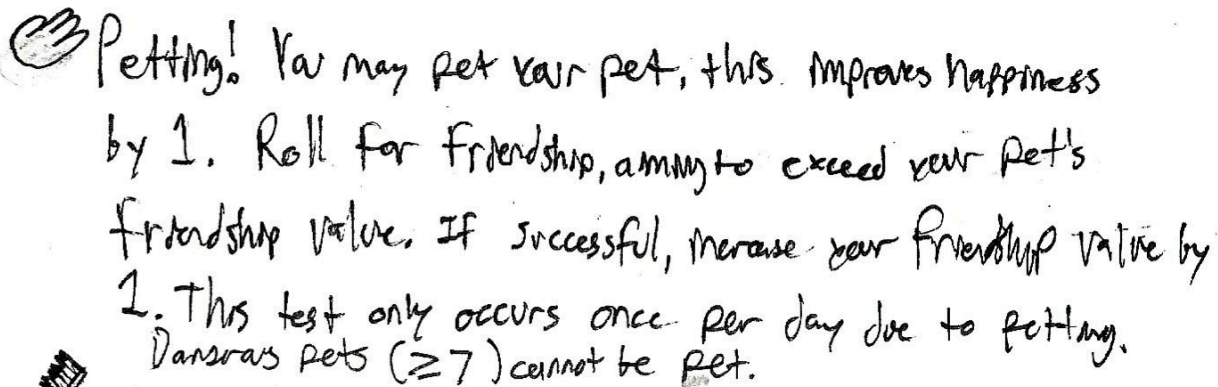 Petting! You may pet your pet, this improves happiness
by 1. Roll for friendship, aiming to exceed your pet's
friendship value. If successful, increase your friendship value by
1. This test only occurs once per day due to petting.
Dangerous pets (≥7) cannot be pet.